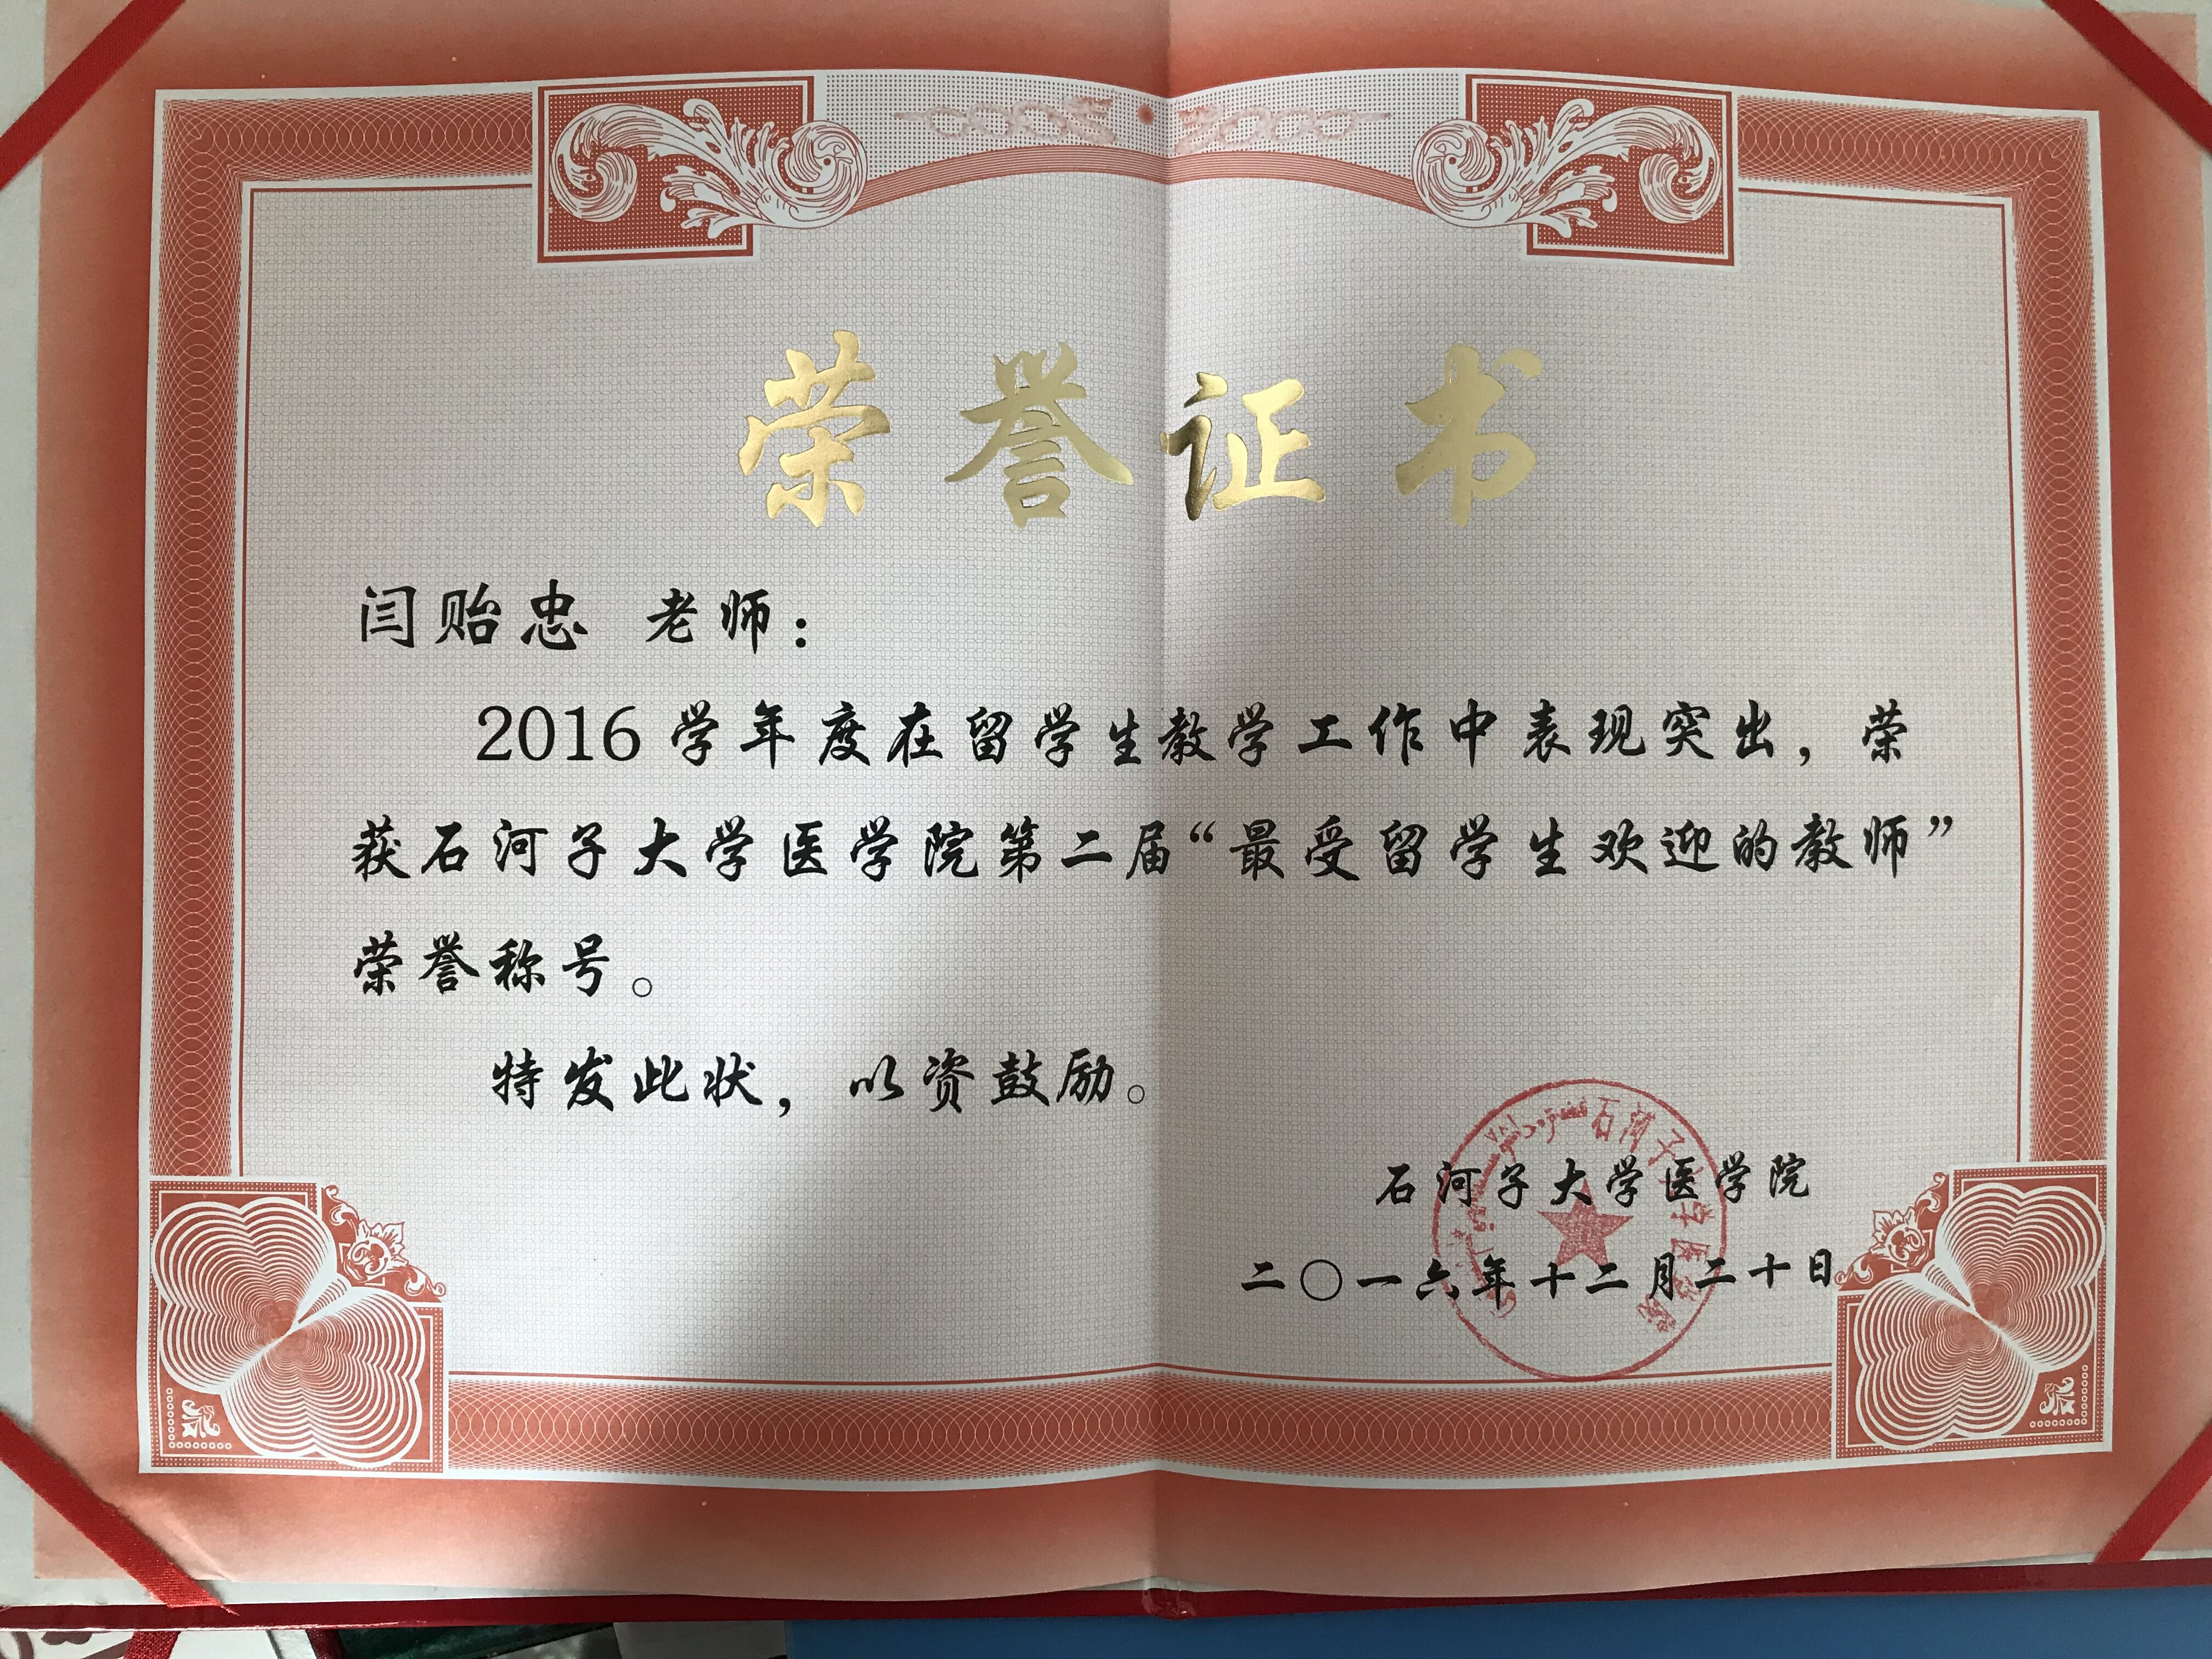 荣誉证书
闫贻忠 老师：
2016学年度在留学生教学工作中表现突出，荣
获石河子大学医学院第二届“最受留学生欢迎的教师”
荣誉称号。
特发此状，以资鼓励。
石河子大学医学院
二〇一六年十二月二十日
石河子大学医学院